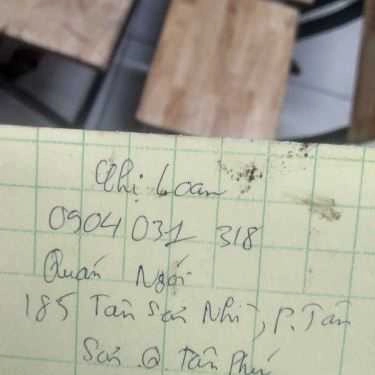 Chị Loan
0904 031 318
Quán Ngói
185 Tân Sơn Nhì, P. Tân
Sơn Q. Tân Phú